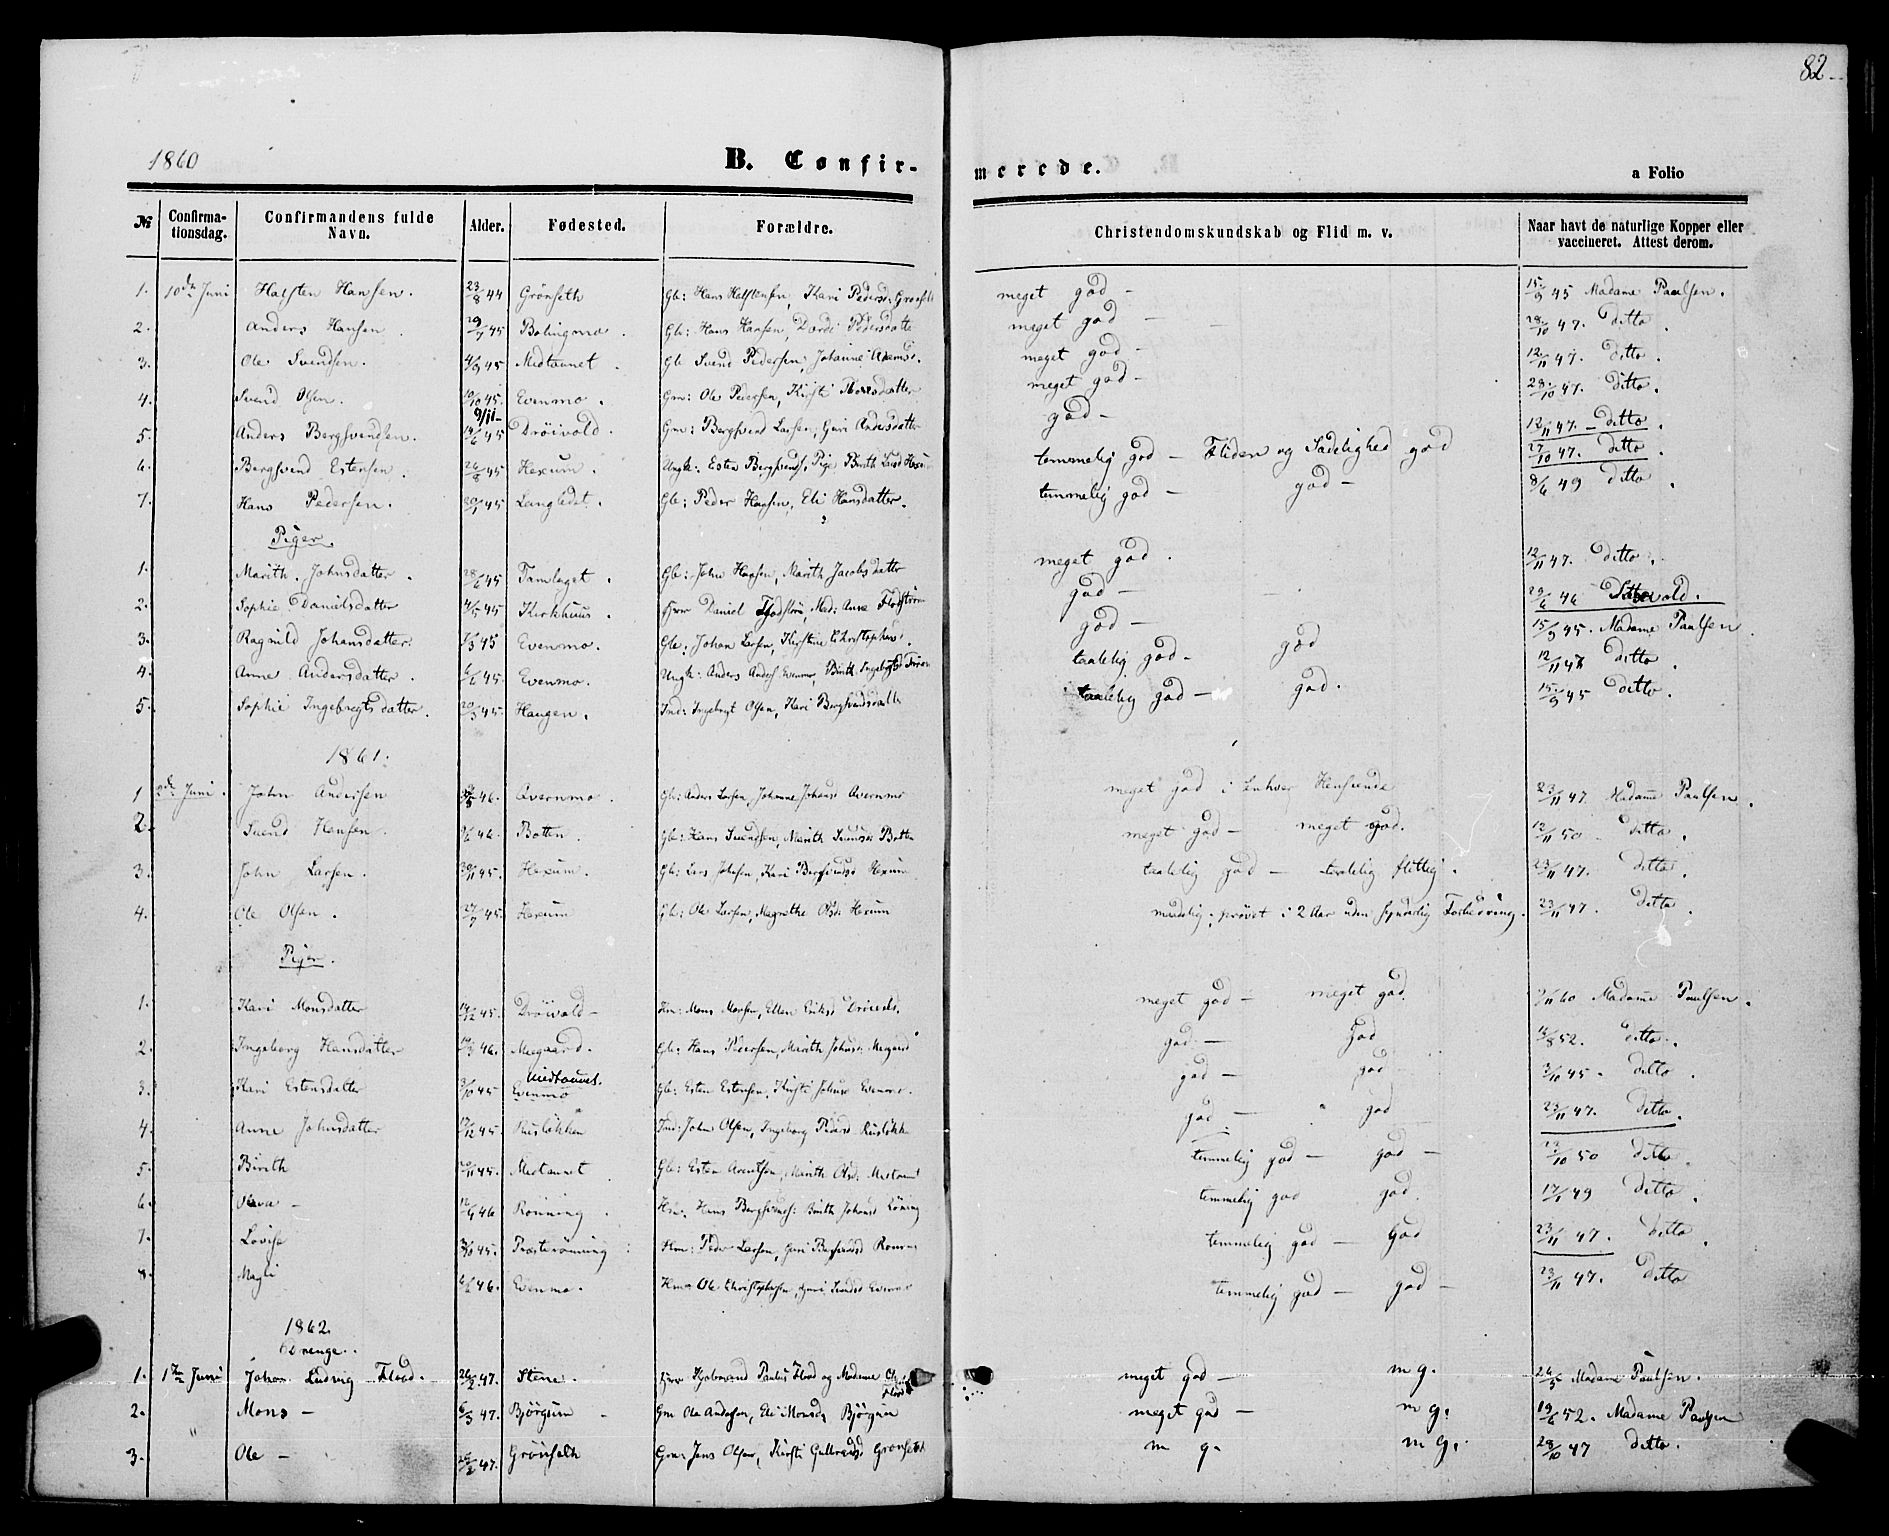 82
1860 B. Confirmerede. a Folio
№ Confirmationsdag. Confirmandens fulde Navn. Alder. Fødested. Forældre. Christendomskundskab og Flid m. v. Naar havt de naturlige Kopper eller vaccineret. Attest derom.
1. 10de Juni Halsten Hansen. 23/8 44 Grönseth Gb: Hans Halstensen, Kari Pedersd: Grönseth meget god - 15/9 45 Madame Paulsen.
2. Anders Hansen 45 Bolingmo. Gb: Hans Hansen, Dordi Pedersdatter meget god - 28/10 47. ditto.
3. Ole Svendsen. 4/9 45 Medtaunet. Gb Svend Pedersen, Johanne meget god - 12/11 47. ditto.
4. Svend Olsen. 10/10 45. Evenmo. Gm: Ole Pedersen, Kirsti Thoresdatter meget god - 28/10 47. ditto.
9/11-
5. Anders Bergsvendsen. 45 Dröivold. Gm: Bergsvend Larsen, Guri Andersdatter god - 12/11 47. - ditto.
6. Bergsvend Estensen. 26/8 45 Hexum. Ungk: Esten Bergsvends, Pige Birith temmelig god - Fliden og Sædelighed god 27/10 47. ditto.
7. Hans Pedersen. 45 Langledet. Gb: Peder Hansen, Eli Hansdatter. temmelig god - god - 8/6 49 ditto.
Piger.
1. Marith. Johnsdatter. 28/6 45 Tamlaget. Gb: John Hansen, Marith Jacobsdatter meget god. 12/11 47. ditto.
2. Sophie Danielsdatter 4/5 45 Kirkhuus. Herr Daniel Mad: Anne Flodström god - 29/6 46
3. Ragnild Johansdatter. 45 Evenmo. Gb. Johan Larsen, Kirstine Christophers. god - 15/9 45. Madame Paulsen.
4. Anne Andersdatter. 6/6 45. Evenmo. Ungk: Anders Anders Evenmo, Birith taalelig god - god 12/11 ditto.
5. Sophie Ingebregtsdatter. 20/3 45. Haugen. Ind: Ingebrigt Olsen, Kari Bergsvendsdatter taalelig god - god. 15/9 45 ditto.
1861.
1 2den Juni. John Andersen 46. Qvernmo. Gb: Anders Larsen, Johanne Johansd Qvernmo meget god i enhver Henseende 23/11 47. Madame Paulsen.
2. Svend Hansen. 46. Botten. Gb: Hans Svendsen, Marith Botten meget god - meget god. 12/11 50 - ditto.
3. John Larsen. 30/11 45. Hexum. Gb: Lars Johnsen, Kari Bergsvendsd Hexum taalelig god - taalelig flittig. 23/11 47. ditto.
4. Ole Olsen. 27/7 45. Hexum Gb: Ole Larsen, Magrethe Olsd: Hexum maadelig; prøvet i 2 Aar uden synderlig Forbedring. 23/11 47. ditto.
Piger.
1. Kari Monsdatter 14/12 45. Dröivold - Hm: Mons Monsen, Ellen Eriksd meget god - meget god. 7/11 60 Madame Paulsen.
2. Ingeborg Hansdatter 46. Meegaard. Gb: Hans Pedersen, Marith Johnsd: god - god 18/8 52. ditto.
Medtaunet.
3. Kari Estensdatter 3/10 45 Evenmo Gb: Esten Estensen, Kirsti Evenmo. god - god 3/10 45 - ditto.
4. Anne Johnsdatter 17/12 45. Rislökken Ind: John Olsen, Ingeborg Pedersd god - god 23/11 47. ditto.
5. Birith 45. Mestaunet Gb: Esten Arentsen, Marith Olsd: temmelig god - god - 23/10 50 ditto.
6. Oleva - 12/4 46 Rönning. Hm. Hans Bergsvends: Birith Johansd temmelig god god. 49 ditto.
7. Lovise 45. Præsterönning: Hm: Peder Larsen, Guri Bergsvendsd temmelig god - god 23/11 47. ditto.
8. Magli 46. Evenmo. Hm Ole Christophersen, Guri Evenmo temmelig god - god - 23/11 47. ditto
1862.
Drenge.
1. 1ste Juni Johan Ludvig Flood. 26/2 47. Stene. Herr Hjelmrand Paulus Flood og Madame Flood meget god - m g. 26/5 Madame Paulsen.
2. " Mons - 6/3 47. Bjørgum - Gm Ole Andersen, Eli Monsd. Bjørgum meget god - m g. 19/6 52. Madame Paulsen
3. Ole - 26/2 47. Grönseth Gm. Jens Olsen, Kirsti Gulbrandsd Grönseth m g. m g. 28/10 47 ditto.